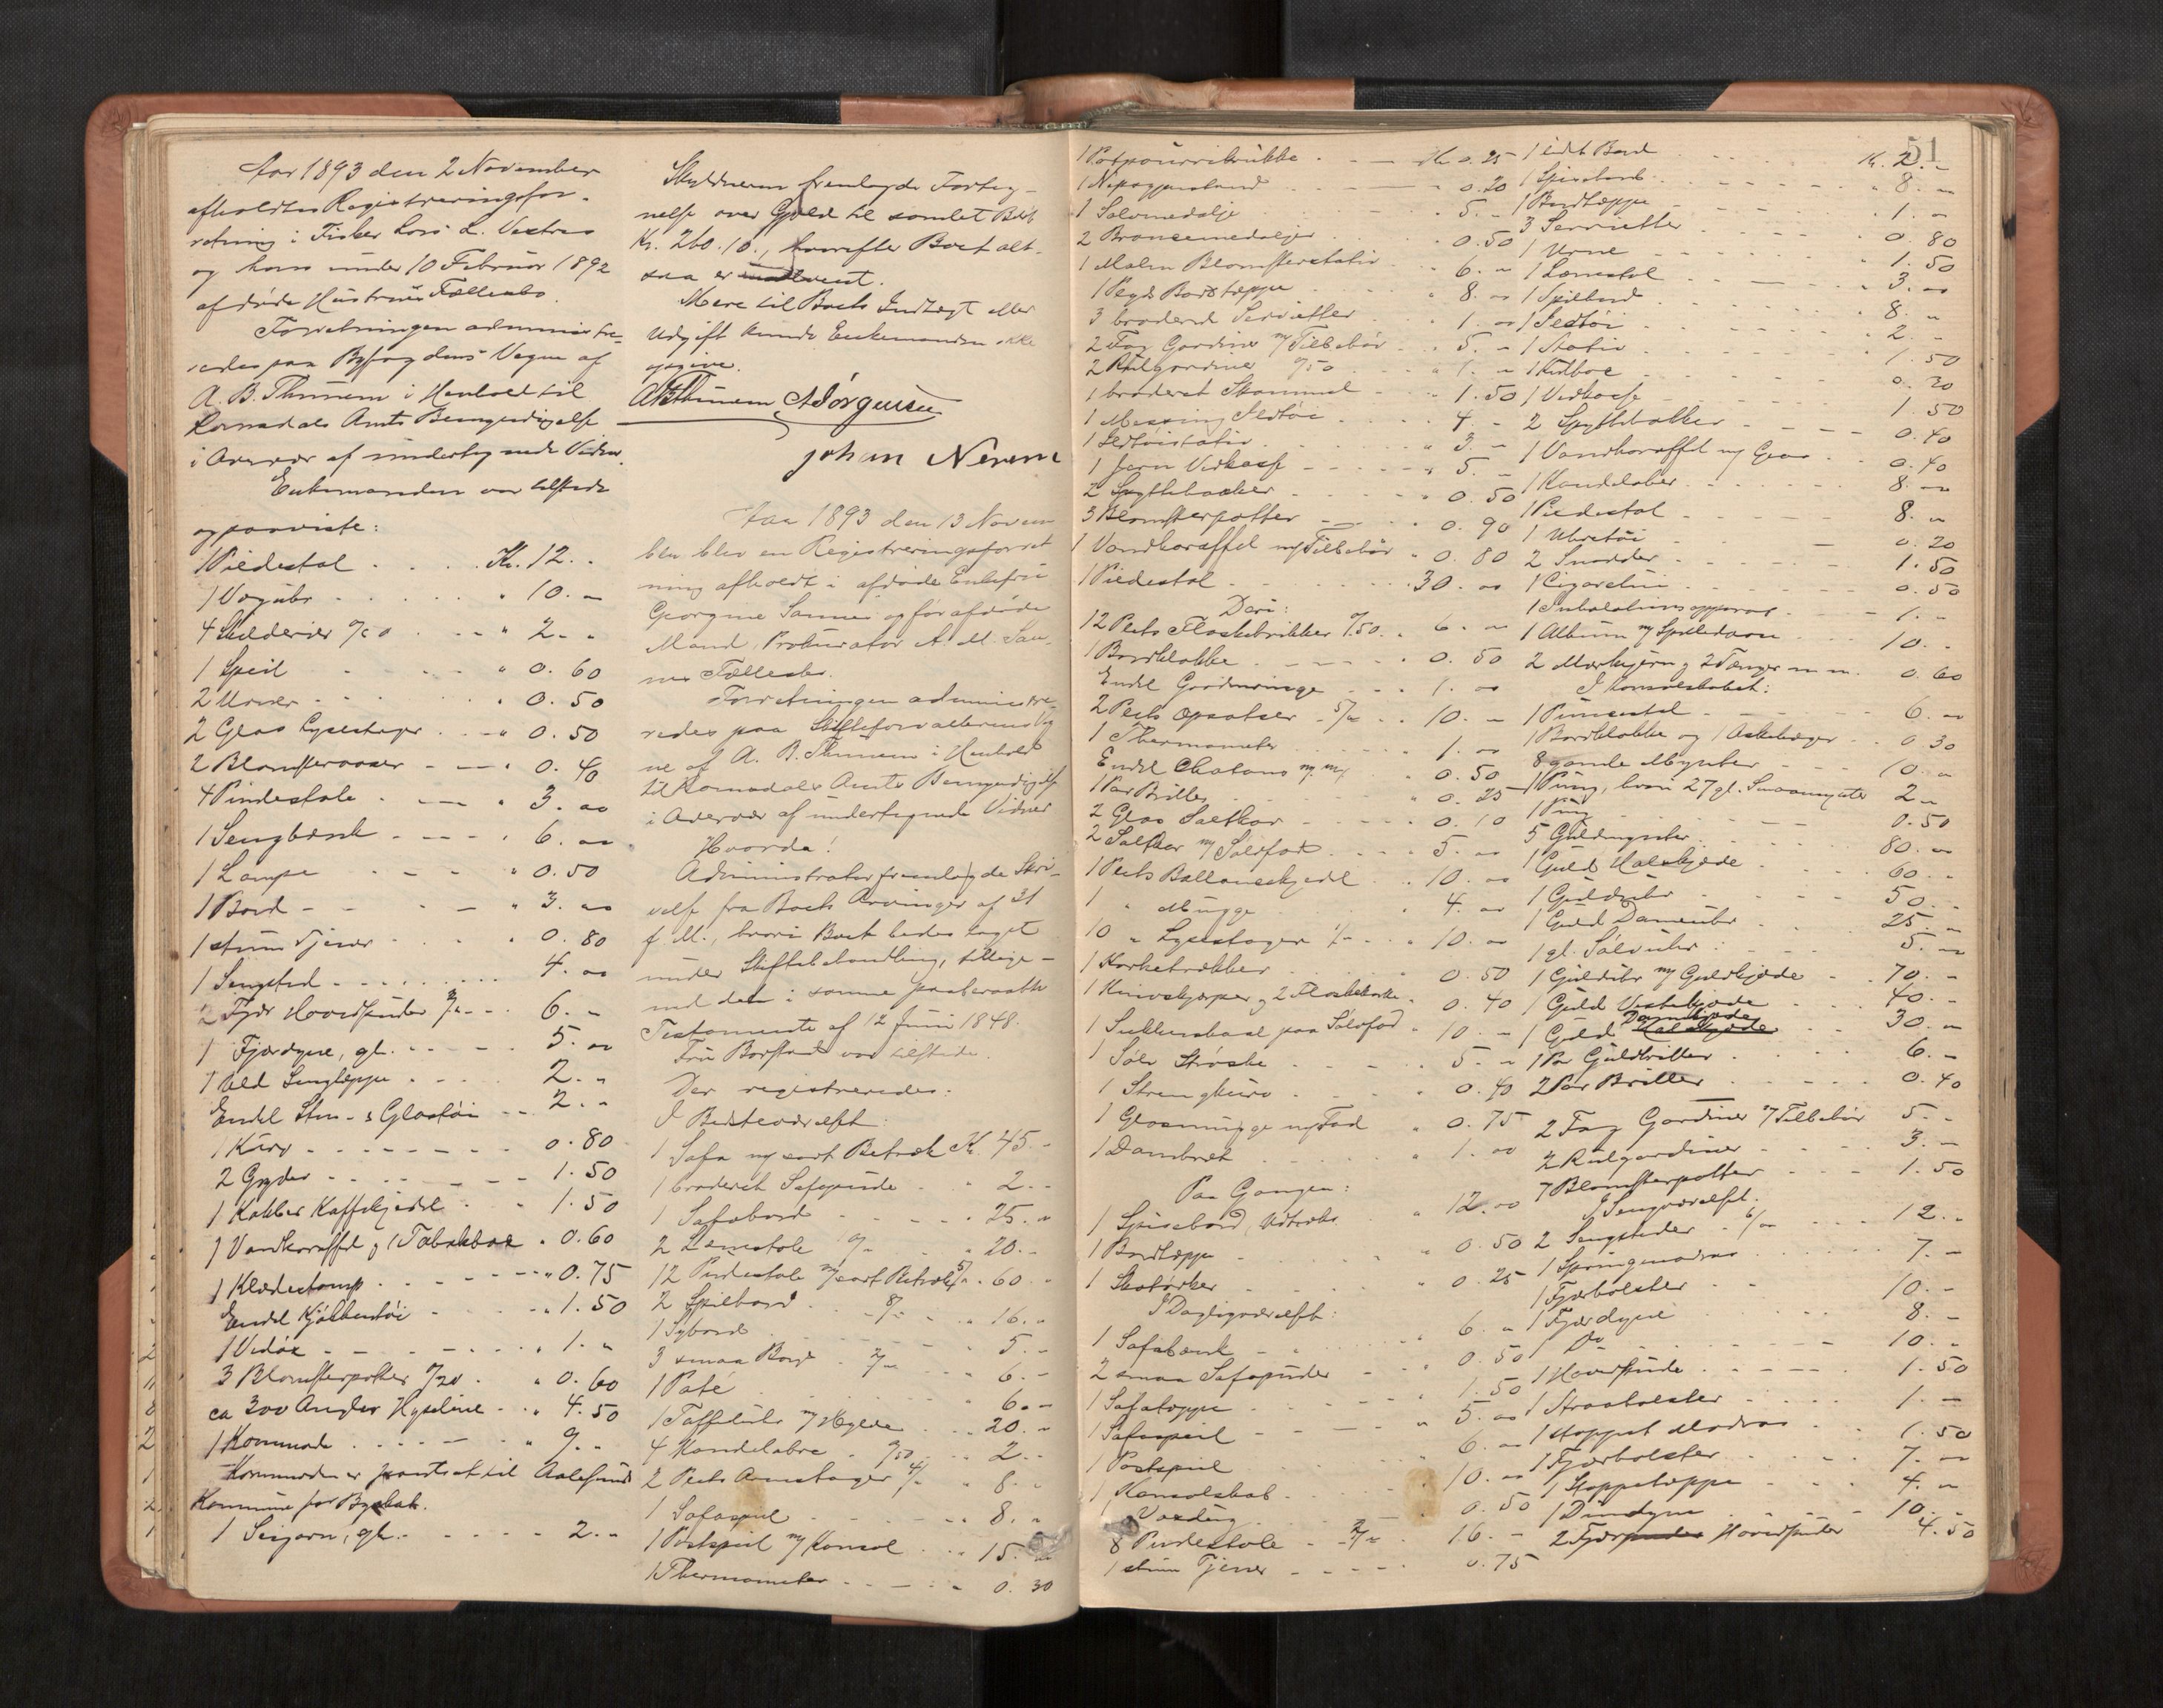 Aar 1893 den 2 November
afholdtes Registreringsfor-
retning i Fisker Lars L. Vestres
og hans under 10 Februar 1892
afdøde Hustrues Fællesbo.
Forretningen administre-
redes paa Byfogdens Vegne af
A. B. Thunem i Henhold til
Romsdals Amts Bemyndigelse
i Overvær af undertegnede Vidner.
Enkemanden var tilstede
og paaviste:
1 Piedestal . . . . Kr. 12. "
1 Væguhr . . . . " 10. "
4 Skilderier . . " 2. "
1 Speil " 0. 60
2 Urner " 0. 50
2 Glas Lysestager . . " 0. 50
2 Blomstervaser " 0. 40
4 Pindestole " 3. "
1 Sengbænk " 6. "
1 Lampe " 0. 50
1 Bord " 3. "
1 stum Tjener 0. 80
1 Sengsted 4. "
2 Fjær Hovedpuder 3/" 6. "
1 Fjærdyne, gl. 5. "
1 uld Sengteppe 2. "
Endel Sten- & Glastøi 2. "
1 Kurv 0. 80
2 Gryder 1. 50
1 Kobber Kaffekjedel 1. 50
1 Vandkaraffel & 1 Tobaksboks " 0. 60
1 Klædestamp " 0. 75
Endel Kjøkkentøi " 1. 50
1 Vedøx " 1. "
3 Blomsterpotter 0/20 " 0. 60
ca 300 Angler Hyseline " 4. 50
1 Kommode " 9. "
Kommoden er pantsat til Aalesunds
Kommune for Byskat.
1 Seigarn, gl. 2. "
Skyldneren fremlagde Forteg-
nelse over Gjæld til samlet Beløb
Kr. 260.10, hvorefter Boet alt-
saa er insolvent.
Mere til Boets Indtægt eller
Udgift kunde Enkemanden ikke
opgive.
ABThunem AJørgensen
Johan Neren
Aar 1893 den 13 Novem
ber blev en Registreringsforret
ning afholdt i afdøde Enkefru
Georgine Sannes og før afdøde
Mand, Prokurator A. M. San-
nes Fællesbo.
Forretningen administre-
redes paa Skifteforvalterens Veg
ne af A. B. Thunem i Henhold
til Romsdals Amts Bemyndigelse
i Overvær af undertegnede Vidner.
Hvorda!
Administrator fremlagde Skri-
velse fra Boets Arvinger af 31
f. M., hvori Boet bedes taget
under Skiftebehandling, tillige-
med den i samme paaberaabte
Testamente af 12 Juni 1848.
Fru Borstad var tilstede.
Der registreredes:
I Besteværelset:
1 Sofa m/ sort Betræk Kr. 45. "
1 broderet Sofapude 2. "
1 Sofabord 25. "
2 Lænestole " 20. "
12 Pindestole m/ sort Betræk 5/" " 60. "
2 Spilbord 8/" " 16. "
1 Sybord 5. "
3 smaa Bord 2/" 6. "
1 Paté 6. "
1 Taffeluhr m/ Hylde 20. "
4 Kandelabre 0/50 2. "
2 Plets Armstager 4/" 8. "
1 Sofaspeil 8. "
1 Postspeil m/ Konsol 15. "
1 Thermometer 0. 30
51
1 Potpourrikrukke Kr. 0. 25
1 Nipsgjenstand 0. 20
1 Sølvmedalje 5. "
2 Broncemedaljer " 0. 50
1 Malm Blomsterstativ 6. "
1 Plyds Bordteppe " 8. "
3 broderet Servietter 1. "
2 Fag Gardiner m/ Tilbehør 5. "
2 Rulgardiner 0/50 1. "
1 broderet Skammel 1. 50
1 Messing Ildtøi 4. "
1 Ildtøistativ " 3. "
1 Jern Vedkasse " 5. "
2 Spyttebakker " 0. 50
3 Blomsterpotter 0. 90
1 Vandkaraffel m/ Tilbehør " 0. 80
1 Piedestal 30. "
Deri:
12 Plets Flaskebrikker 0/50 " 6. "
1 Bordklokke " 0. 50
Endel Gardinringe 1. "
2 Plets Opsatser 5/" 10. "
1 Thermometer 1. "
Endel Chatons m. m. " 0. 50
1 Par Briller " 0. 25
2 Glas Saltkar 0. 10
2 Saltkar m/ Sølvfod 5. "
1 Plets Ballonekjedel 10. "
1 " Mugge " 4. "
10 " Lysestager 1/" " 10. "
1 Korketrækker 0. 50
1 Knivskjærper & 2 Flaskekorke " 0. 40
1 Sukkerskaal paa Sølvfod " 10. "
1 Sølv Strøske 5. "
1 Strengkurv " 0. 40
1 Glasmugge m/ Fad " 0. 75
1 Dambret " 1. "
Paa Gangen:
1 Spisebord, Udtræks " 12. "
1 Bordteppe " 0. 50
1 Skotørker " 0. 25
I Dagligværelset:
1 Sofabænk 6. "
2 smaa Sofapuder 0. 50
1 Sofateppe 1. 50
1 Sofaspeil " 5. "
1 Postspeil 6. "
1 Konsolskab " 10. "
1 Voxdug " 0. 50
8 Pindestole 2/" 16. "
1 stum Tjener 0. 75
1 lidt Bord Kr. 2. "
1 Spisebord " 8. "
1 Bordteppe 1. "
3 Servietter 0. 80
1 Urne 1. 50
1 Lænestol " 3. "
1 Spilbord 8. "
1 Ildtøi 2. "
1 Stativ 1. 50
1 Kulboe 0. 20
1 Vedkasse 1. 50
2 Spyttebakker 0. 40
1 Vandkaraffel m/ Glas 0. 40
1 Kandelaber 8. "
1 Piedestal 8. "
1 Uhrstøi 0. 20
2 Snadder 1. 50
1 Cigaretui 0. 50
1 Inhalationsapparat 1. "
1 Album m/ Spilledaase 10. "
2 Mærkejern & 2 Tænger m. m. 0. 60
I Konsolskabet:
1 Punsestel 6. "
1 Bordklokke og 1 Askebæger 0 30
8 gamle Mynter 10. "
1 Pung, hvori 27 gl. Smaamynter 2 "
1 Pung 0. 50
5 Guldmynter 80. "
1 Guld Halskjæde 60. "
1 Guldguhr 50. "
1 Guld Dameuhr 25. "
1 gl. Sølvuhr 5. "
1 Gulduhr m/ Guldkjæde 70. "
1 Guld Vestekjæde 40. "
1 Guld Damekjæde Halskjæde 30. "
1 Par Guldbriller 6. "
2 Par Briller 0. 40
2 Fag Gardiner m/ Tilbehør 5. "
2 Rulgardiner 3. "
7 Blomsterpotter 1. 50
I Sengværelset:
2 Sengsteder 6/" 12. "
1 Springmadras 7. "
1 Fjærbolster 10. "
1 Fjærdyne 8. "
1 Do 10. "
1 Hovedpude 1. 50
1 Straabolster 1. "
1 stoppet Madras 1. 50
1 Fjærbolster 7. "
1 Stoppeteppe 4. "
1 Dundyne 10. "
2 Fjærpuder Hovedpuder 4. 50